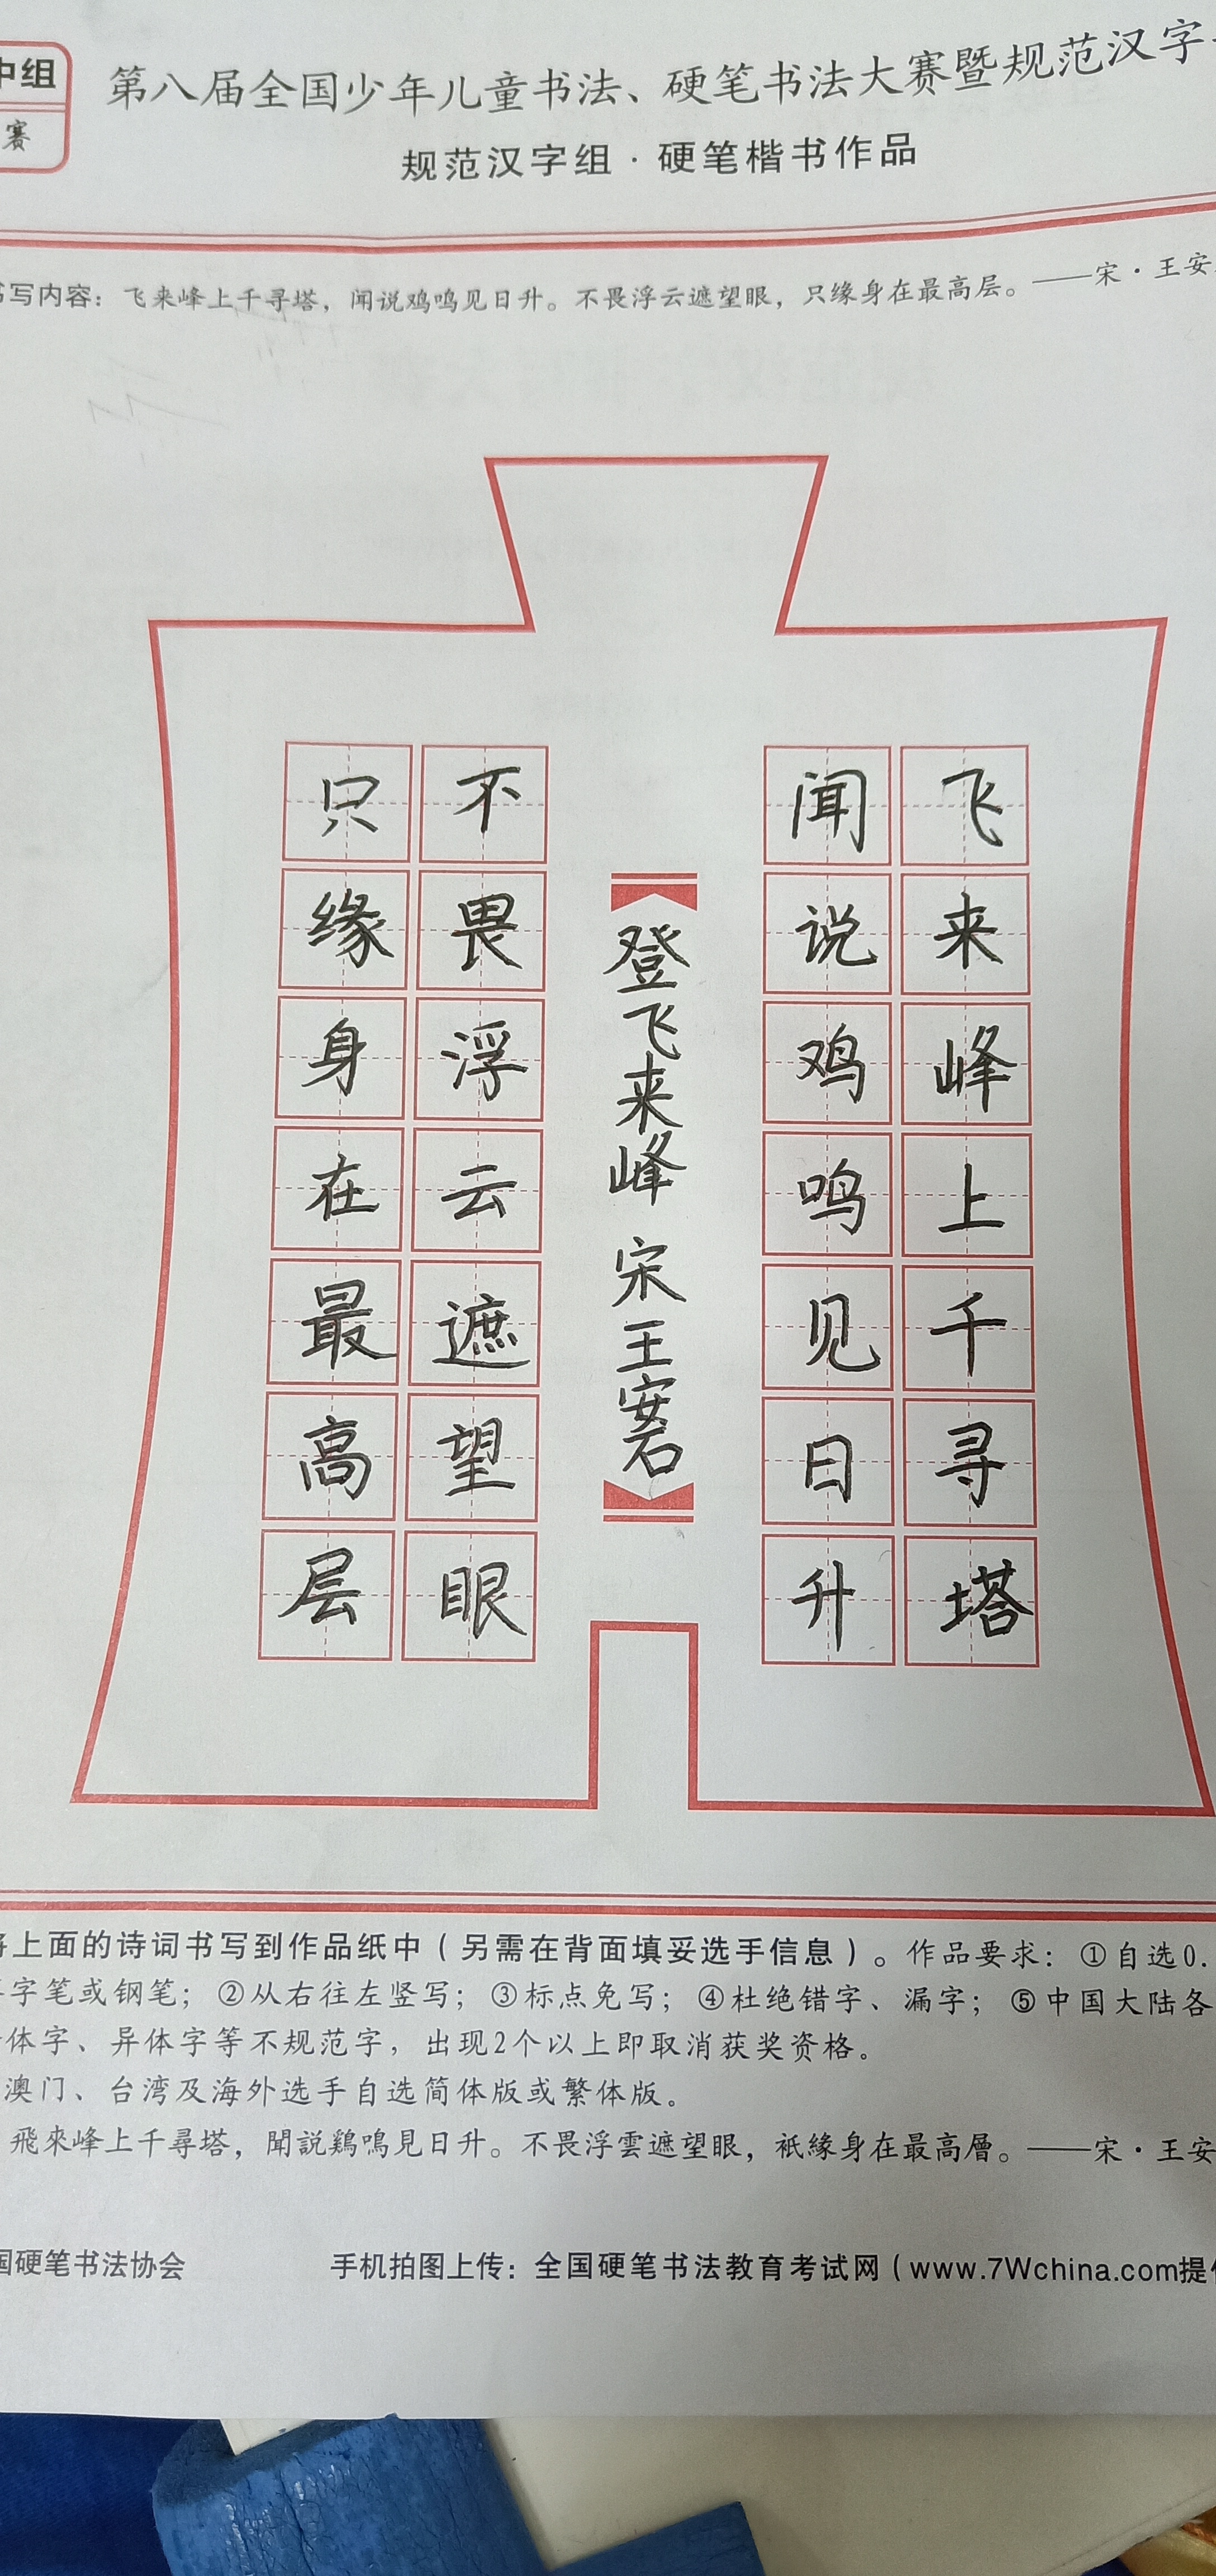 中组
赛
第八届全国少年儿童书法、硬笔书法大赛暨规范汉字
规范汉字组·硬笔楷书作品
书写内容：飞来峰上千寻塔，闻说鸡鸣见日升。不畏浮云遮望眼，只缘身在最高层。——宋·王安
飞来峰上千寻塔
闻说鸡鸣见日升
登飞来峰 宋 王安石
不畏浮云遮望眼
只缘身在最高层
将上面的诗词书写到作品纸中（另需在背面填妥选手信息）。作品要求：①自选0.
字笔或钢笔；②从右往左竖写；③标点免写；④杜绝错字、漏字；⑤中国大陆各
体字、异体字等不规范字，出现2个以上即取消获奖资格。
澳门、台湾及海外选手自选简体版或繁体版。
飛來峰上千尋塔，聞説鷄鳴見日升。不畏浮雲遮望眼，衹緣身在最高層。——宋·王安
国硬笔书法协会
手机拍图上传：全国硬笔书法教育考试网（www.7Wchina.com提供